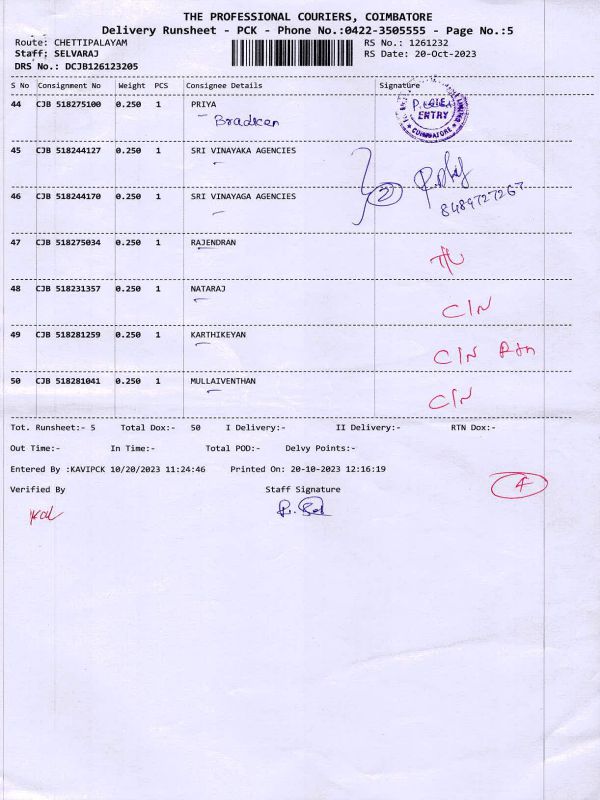 THE PROFESSIONAL COURIERS, COIMBATORE
Delivery Runsheet - PCK - Phone No.:0422-3505555 - Page No.:5
Route: CHETTIPALAYAM RS No.: 1261232
Staff: SELVARAJ RS Date: 20-Oct-2023
DRS No.: DCJB126123205
S No Consignment No Weight PCS Consignee Details Signature
44 CJB 518275100 0.250 1 PRIYA
Bradken
ENTRY
COIMBATORE
45 CJB 518244127 0.250 1 SRI VINAYAKA AGENCIES
2
8489727267
46 CJB 518244170 0.250 1 SRI VINAYAGA AGENCIES
47 CJB 518275034 0.250 1 RAJENDRAN
48 CJB 518231357 0.250 1 NATARAJ C/N
49 CJB 518281259 0.250 1 KARTHIKEYAN C/N
50 CJB 518281041 0.250 1 MULLAIVENTHAN C/N
Tot. Runsheet:- 5 Total Dox:- 50 I Delivery:- II Delivery:- RTN Dox:-
Out Time:- In Time:- Total POD:- Delvy Points:-
Entered By :KAVIPCK 10/20/2023 11:24:46 Printed On: 20-10-2023 12:16:19
Verified By Staff Signature
4